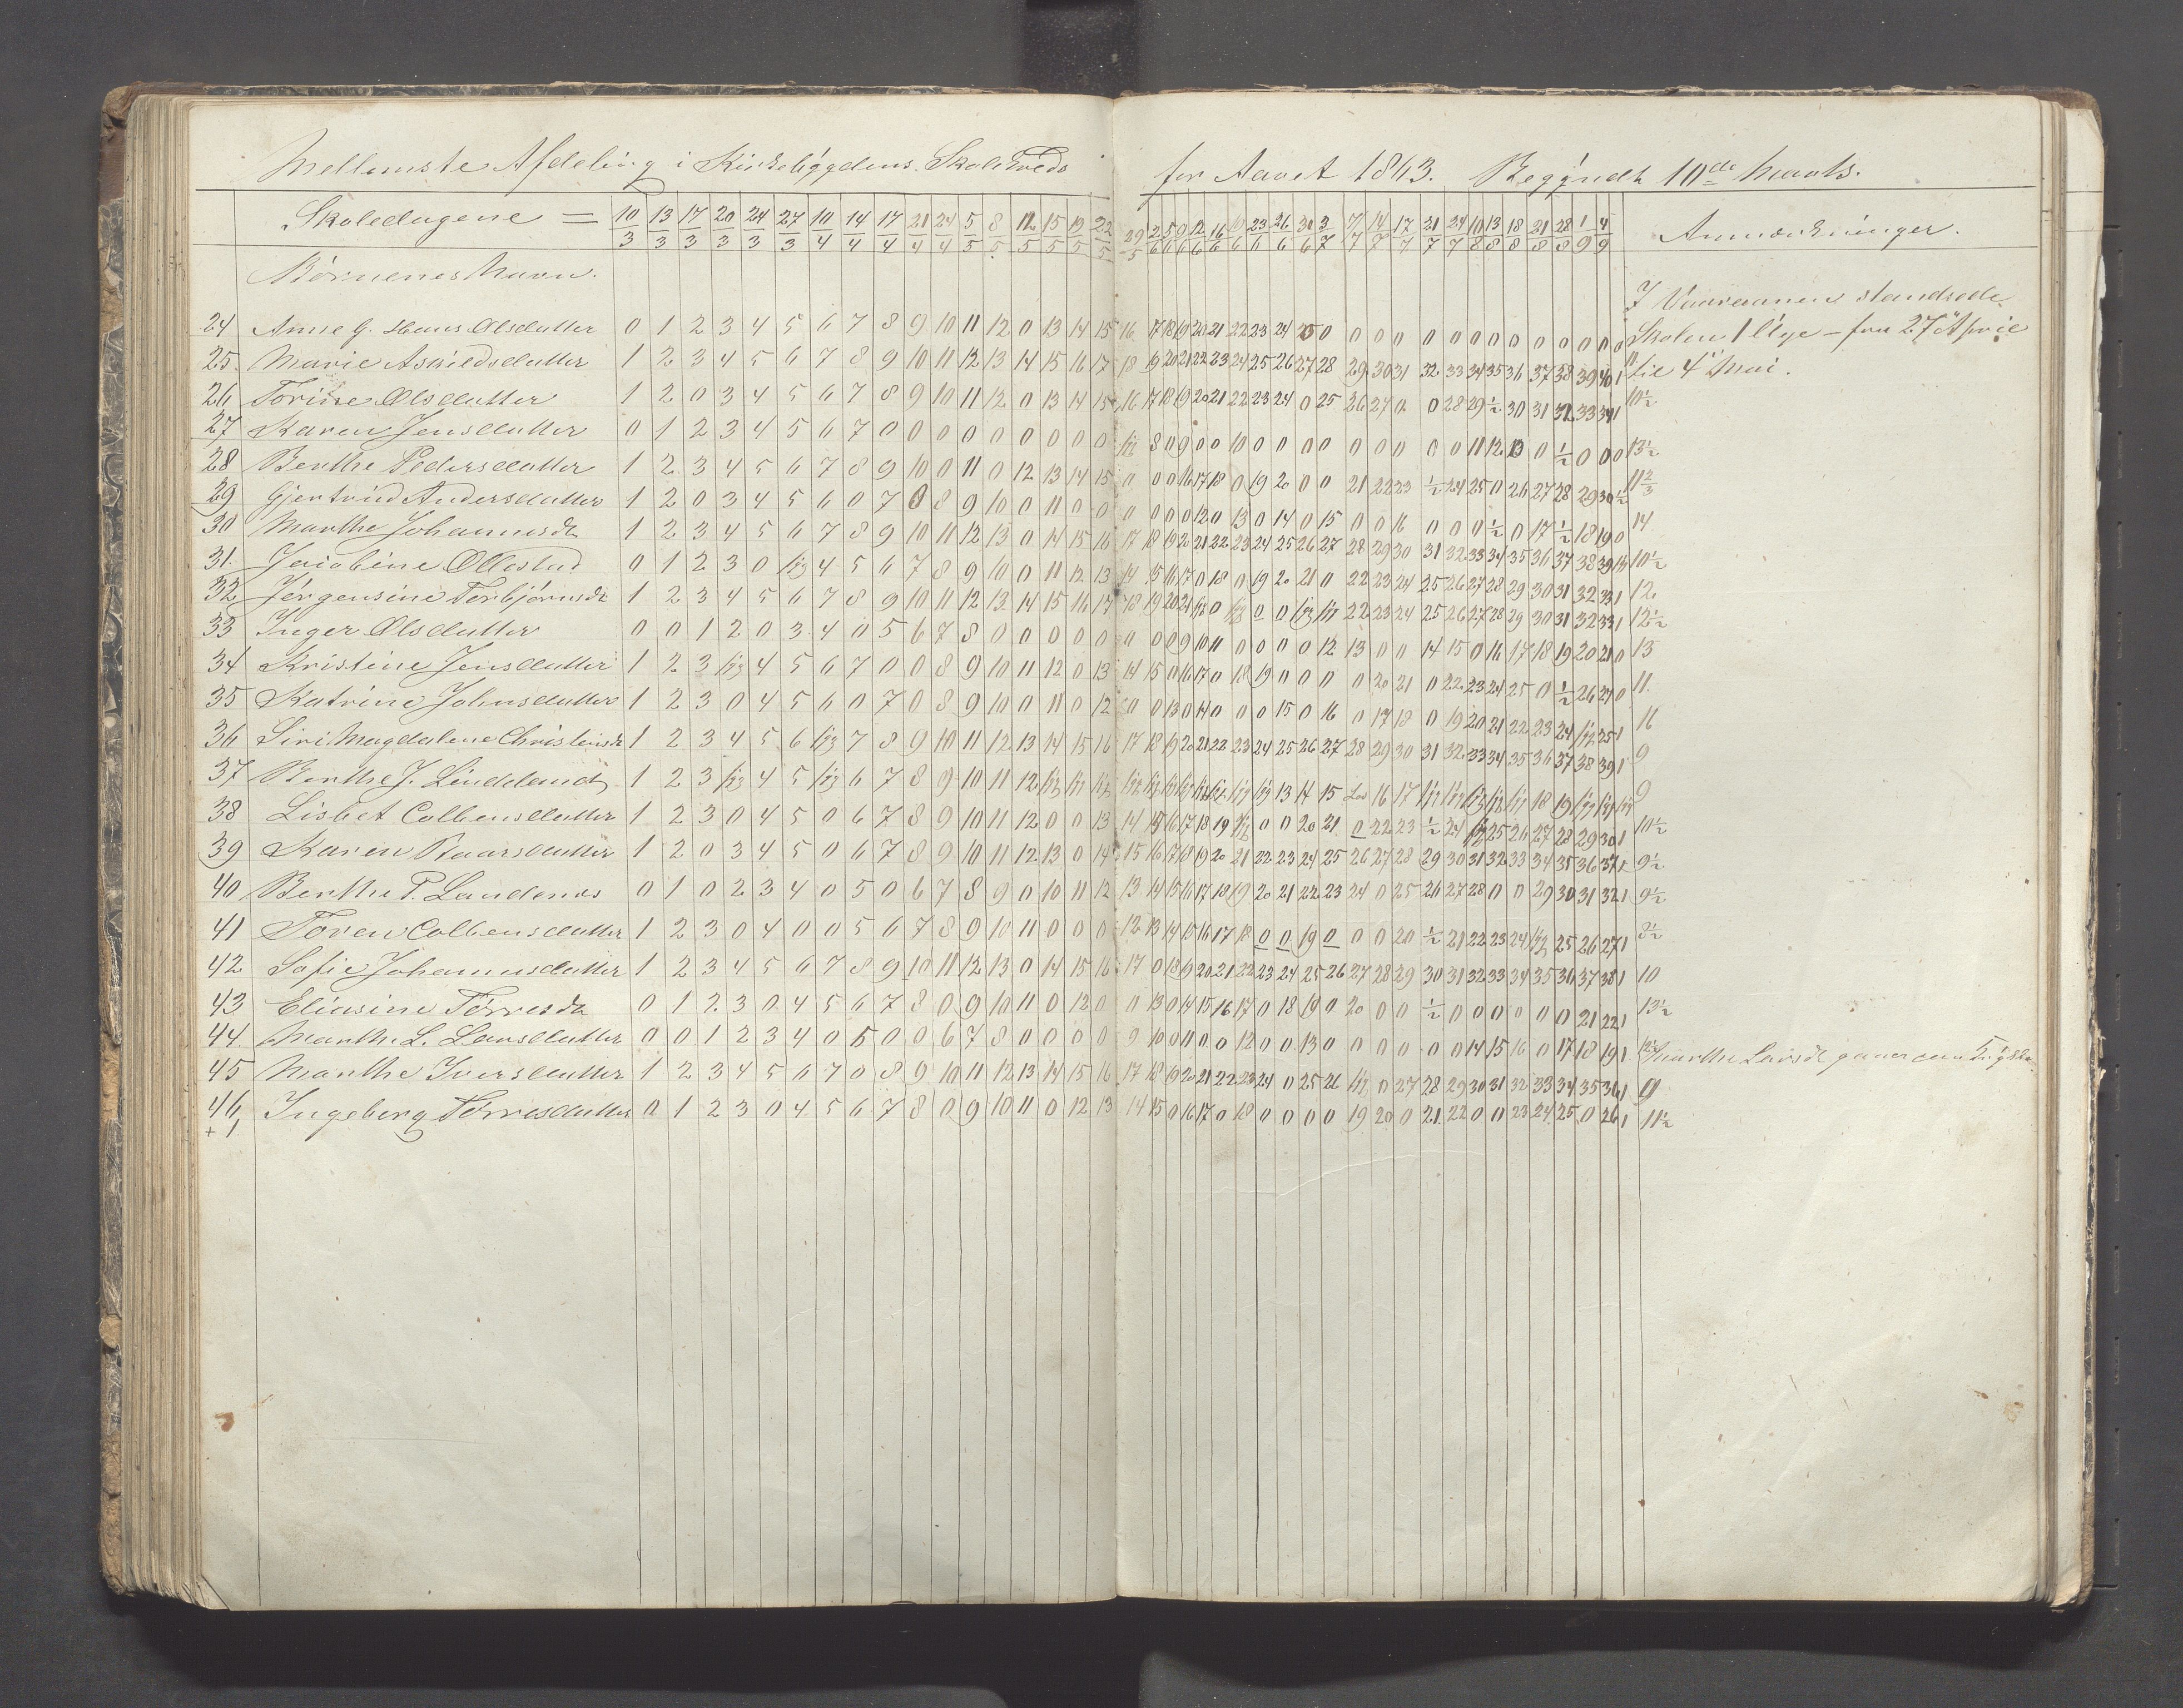 Mellemste Afdeling i Kirkebÿgdens Skolekreds for Aaret 1863. Begÿndt 10de Marts.
Skoledagene = 10/3 13/3 17/3 20/3 24/3 27/3 10/4 14/4 17/4 21/4 24/4 5/5 8/5 12/5 15/5 19/5 22/5 29/5 2/6 5/6 9/6 12/6 16/6 19/6 23/6 26/6 30/6 3/7 7/7 14/7 17/7 21/7 24/7 10/8 13/8 18/8 21/8 28/8 1/9 4/9 Anmærkninger.
Børnenes Navn.
I Vaaraanen standsede
24 Anne G. Hans Olsdatter 0 1 2 3 4 5 6 7 8 9 10 11 12 0 13 14 15 16 17 18 19 20 21 22 23 24 25 0 0 0 0 0 0 0 0 0 0 0 0 0 0 Skolen 1 Uge - fra 27de April
25 Marie Askildsdatter 1 2 3 4 5 6 7 8 9 10 11 12 13 14 15 16 17 18 19 20 21 22 23 24 25 26 27 28 29 30 31 32 33 34 35 36 37 38 39 40 1 11 til 4de Mai.
26 Torine Olsdatter 1 2 0 3 4 5 6 7 8 9 10 11 12 0 13 14 15 16 17 18 19 20 21 22 23 24 0 25 26 27 0 0 28 29 1/2 30 31 32 33 34 1 10 1/2
27 Karen Jensdatter 0 1 2 3 4 5 6 7 0 0 0 0 0 0 0 0 0 8 0 9 0 0 10 0 0 0 0 0 0 0 0 0 11 12 13 0 1/2 0 0 0 13 1/2
28 Berthe Pedersdatter 1 2 3 4 5 6 7 8 9 10 0 11 0 12 13 14 15 0 0 0 16 17 18 0 19 20 0 0 21 22 23 1/2 24 25 0 26 27 28 29 30 1/2 11 2/3
29 Gjertrud Andersdatter 1 2 0 3 4 5 6 0 7 0 8 9 10 0 11 0 0 0 0 0 0 12 0 13 0 14 0 15 0 0 16 0 0 0 1/2 0 17 1/2 18 19 0 14
30 Marthe Johannesdr 1 2 3 4 5 6 7 8 9 10 11 12 13 0 14 15 16 17 18 19 20 21 22 23 24 25 26 27 28 29 30 31 32 33 34 35 36 37 38 39 10 1/2
31. Jacobine Ollestad 0 1 2 3 0 syg 4 5 6 7 8 9 10 0 11 12 13 14 15 16 17 0 18 0 19 20 21 0 22 23 24 25 26 27 28 29 30 31 32 33 1 12
32 Jørgensine Torbjørnsdr 1 2 3 4 5 6 7 8 9 10 11 12 13 14 15 16 17 18 19 20 21 syg 0 syg 0 0 syg syg 22 23 24 25 26 27 28 29 30 31 32 33 1 12 1/2
33 Inger Olsdatter 0 0 1 2 0 3 4 0 5 6 7 8 0 0 0 0 0 0 0 0 9 10 11 0 0 0 0 12 13 0 0 14 15 0 16 17 18 19 20 21 0 13
34 Kristine Jensdatter 1 2 3 syg 4 5 6 7 0 0 8 9 10 11 12 0 13 14 15 0 16 17 0 18 19 0 0 0 0 20 21 0 22 23 24 25 0 1/2 26 27 0 11
35 Katrine Johnsdatter 1 2 3 0 4 5 6 0 7 0 8 9 10 0 11 0 12 0 0 13 0 14 0 0 0 15 0 16 0 17 18 0 19 20 21 22 23 24 syg 25 1 16
36 Siri Magdalene Christensdr 1 2 3 4 5 6 syg 7 8 9 10 11 12 13 14 15 16 17 18 19 20 21 22 23 24 25 26 27 28 29 30 31 32 33 34 35 36 37 38 39 1 9
37 Berthe J. Lindeland 1 2 3 syg 4 5 syg 6 7 8 9 10 11 12 syg syg syg syg syg syg syg syg syg syg syg 13 14 15 Lov 16 17 syg syg syg syg syg 18 19 syg syg syg 9
38 Lisbet Colbensdatter 1 2 3 0 4 5 0 6 7 8 9 10 11 12 0 0 13 14 15 16 17 18 19 syg 0 0 20 21 0 22 23 1/2 24 syg 25 26 27 28 29 30 1 10 1/2
39 Karen Roarsdatter 1 2 0 3 4 5 0 6 7 8 9 10 11 12 13 0 14 15 16 17 18 19 20 21 22 23 24 25 26 27 28 29 30 31 32 33 34 35 36 37 1 9 1/2
40 Berthe P. Landenes 0 1 0 2 3 4 0 5 0 6 7 8 9 0 10 11 12 13 14 15 16 17 18 19 20 21 22 23 24 0 25 26 27 28 0 0 29 30 31 32 1 9 1/2
41 Toren Colbensdatter 1 2 3 0 4 0 0 5 6 7 8 9 10 11 0 0 0 12 13 14 15 16 17 18 0 0 19 0 0 0 20 1/2 21 22 23 24 syg 25 26 27 1 8 1/2
42 Sofie Johannesdatter 1 2 3 4 5 6 7 8 9 10 11 12 13 0 14 15 16 17 0 18 19 20 21 22 23 24 25 26 27 28 29 30 31 32 33 34 35 36 37 38 1 10
43 Eliasine Tørresdr 0 1 2 3 0 4 5 6 7 8 0 9 10 11 0 12 0 0 13 0 14 15 16 17 0 18 19 0 20 0 0 1/2 0 0 0 0 0 0 21 22 1 13 1/2
44. Marthe L. Larsdatter 0 0 1 2 3 4 0 5 0 0 6 7 8 0 0 0 0 9 10 0 11 0 0 12 0 0 13 0 0 0 0 0 0 14 15 16 0 17 18 19 1 Marthe Larsdr gaaer
45 Marthe Iversdatter 1 2 3 4 5 6 7 0 8 9 10 11 12 13 14 15 16 17 18 19 20 21 22 23 24 0 25 26 syg 0 27 28 29 30 31 32 33 34 35 36 1 9
46 Ingeborg Tørresdatter 0 1 2 3 0 4 5 6 7 8 0 9 10 11 0 12 13 14 15 0 16 17 0 18 0 0 0 0 19 20 0 21 22 0 0 23 24 25 0 26 1 11 1/2
+ 1